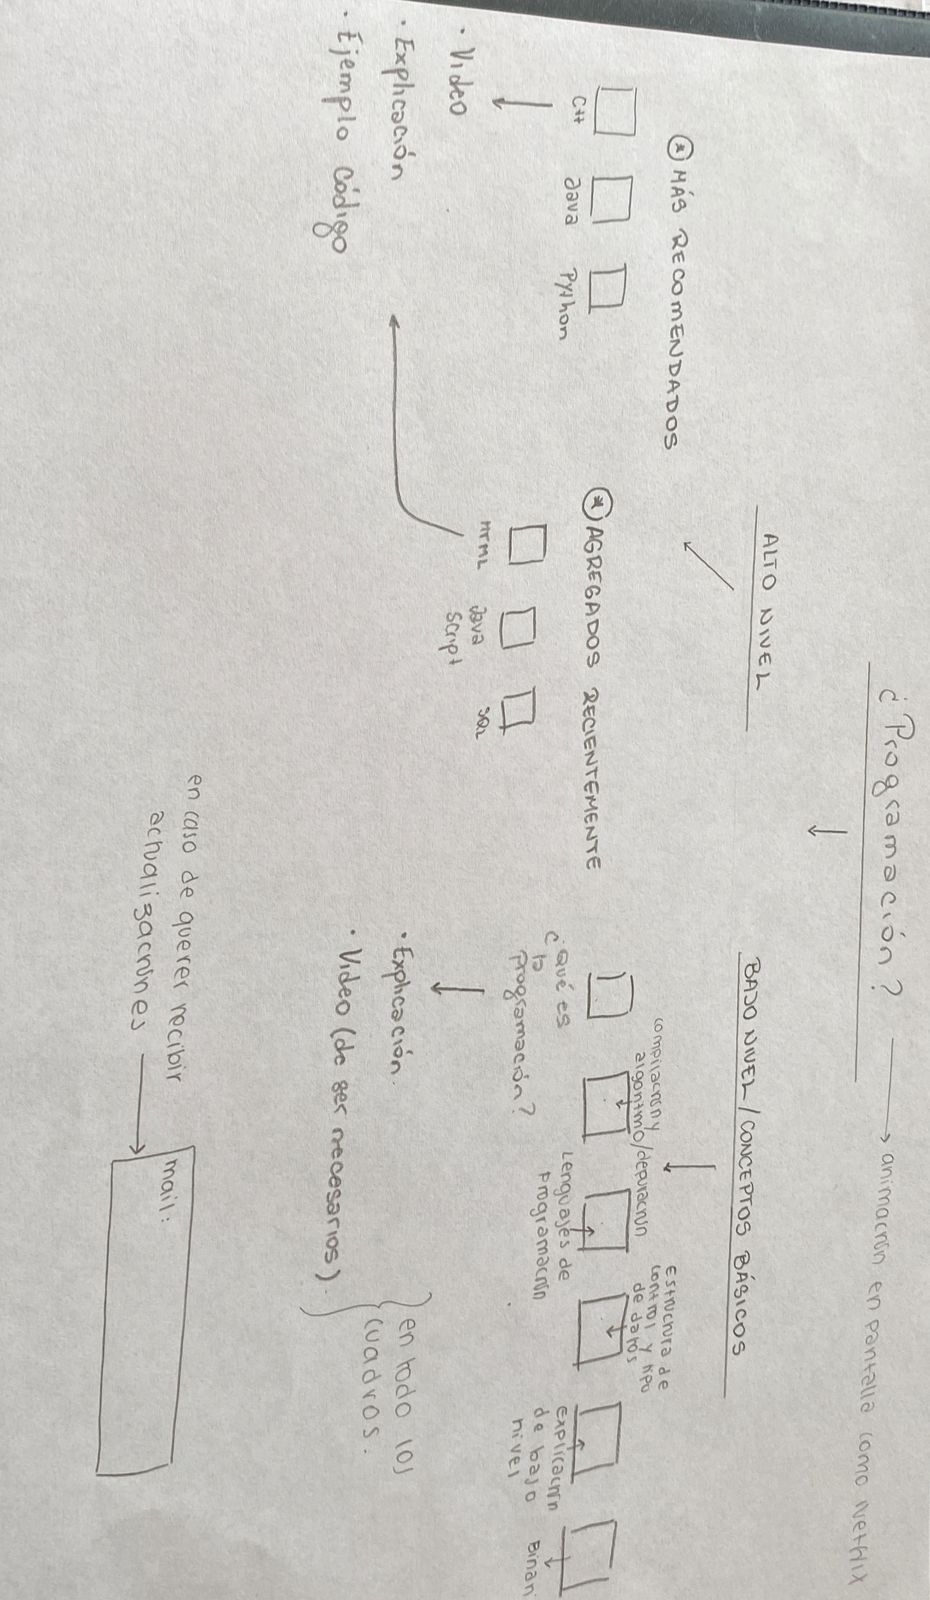 ¿Programación?
animación en pantalla como Netflix
ALTO NIVEL
* MÁS RECOMENDADOS
C++
Java
Python
· Video
· Explicación
· Ejemplo código
* AGREGADOS RECIENTEMENTE
HTML
Java
Script
SQL
BAJO NIVEL/CONCEPTOS BÁSICOS
¿qué es
la
programación?
compilación y
algoritmo/depuración
Lenguajes de
programación
Estructura de
control y tipo
de datos
explicación
de bajo
nivel
Binari
· Explicación.
· Video (de ser necesarios).
en todo los
cuadros.
en caso de querer recibir
actualizaciones
mail: